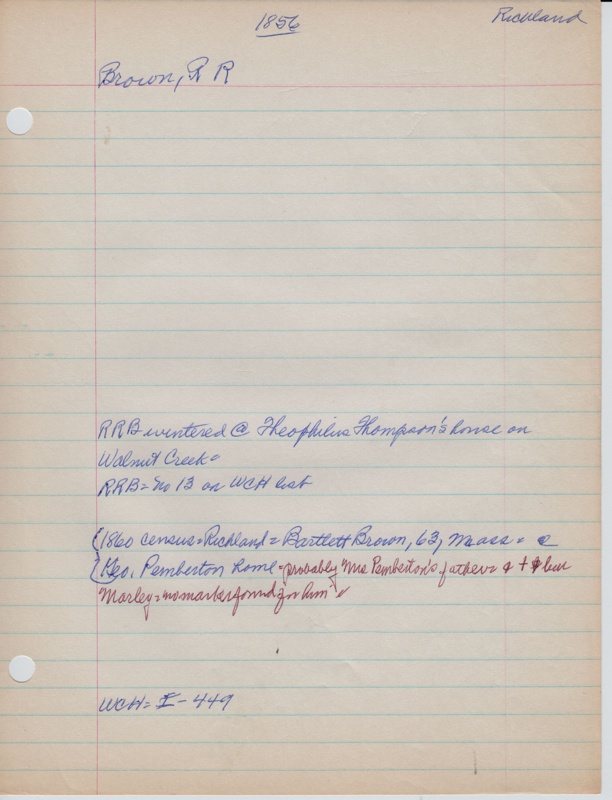 1856
Richland
Brown, R R
RRB wintered @ Theophilus Thompson's house on
Walnut Creek =
RRB = no 13 on WCH list
1860 census = Richland = Bartlett Brown, 63, Mass = @
Geo. Pemberton home = probably Mrs Pemberton's father =
Marley = no marker found for him
WCH = I - 449